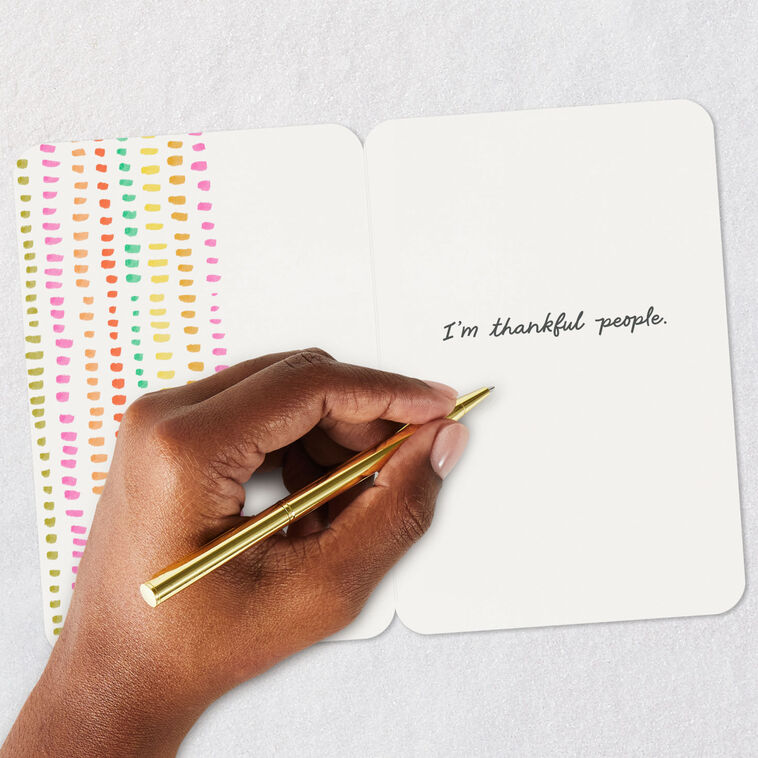 I'm thankful people.